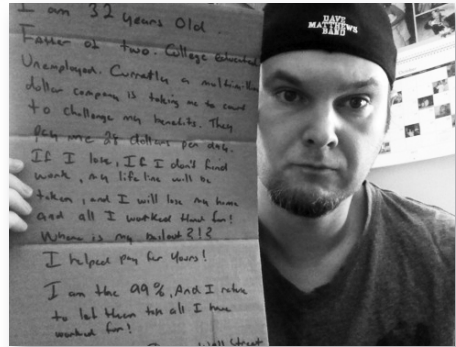 I am 32 years Old
Father of two. College educated
Unemployed. Currently a
dollar company is taking me to court
to challenge my benefits. They
pay me 28 dollars per day.
If I lose, If I don't find
work, my life line will be
taken, and I will lose my home
and all I worked for!
Where is my bailout?!?
I helped pay for yours!
I am the 99%, And I refuse
to let them take all I have
worked for!
Wall Street
DAVE
MATTHEWS
BAND